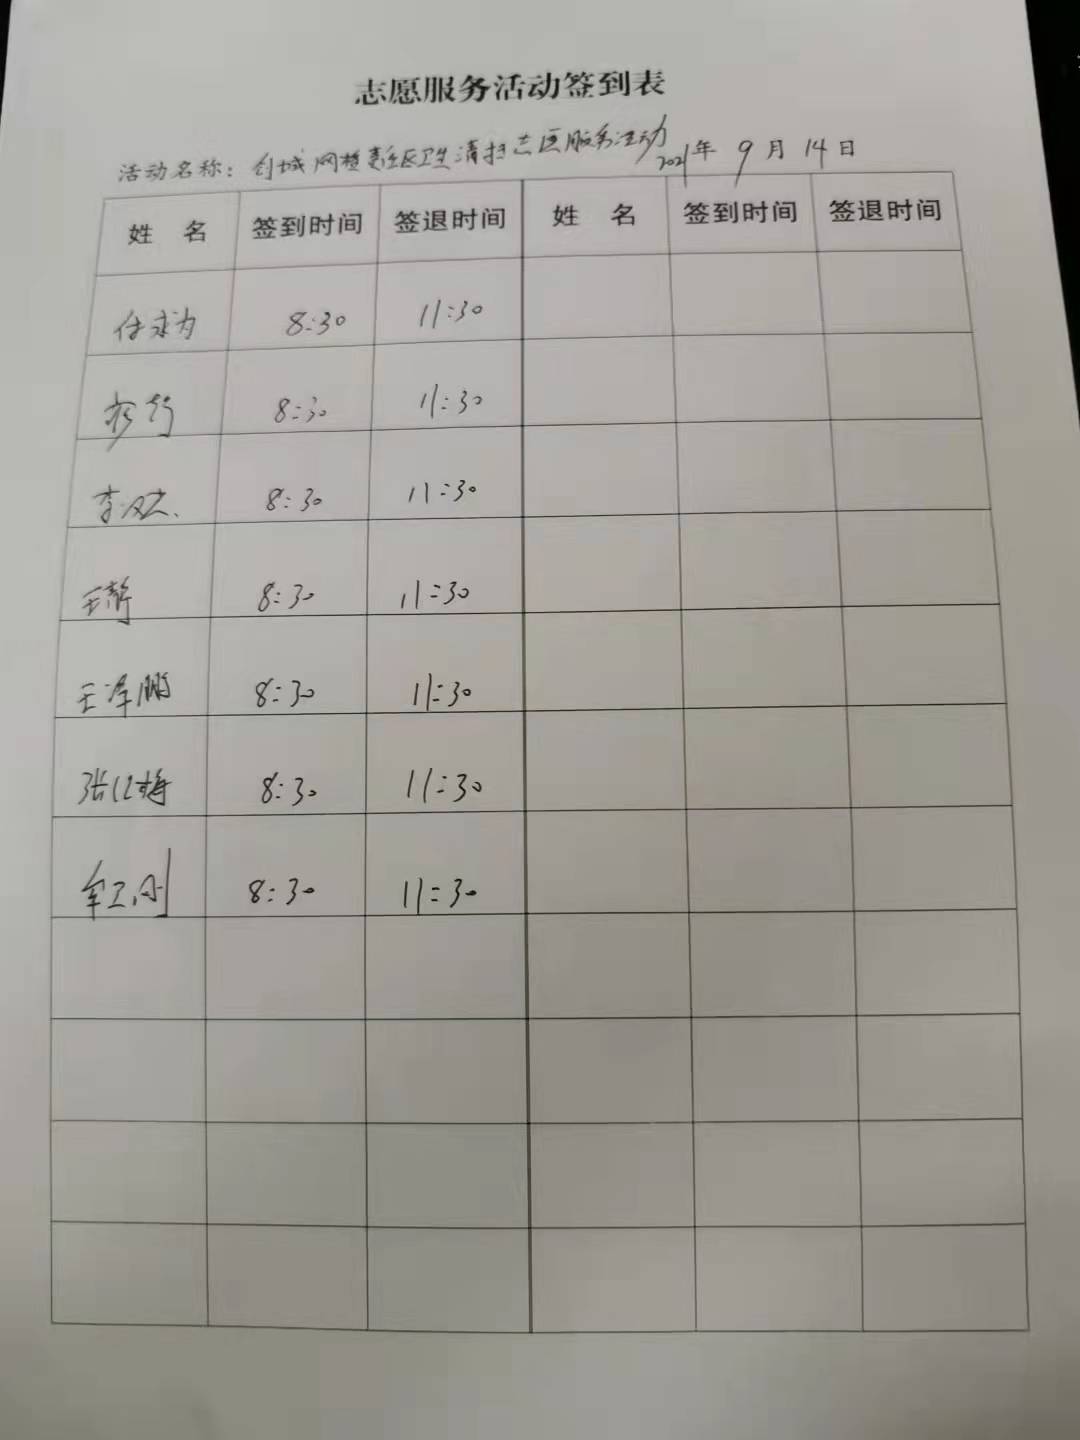 志愿服务活动签到表
活动名称：创城网格责任区卫生清扫志愿服务活动 2021年 9月 14日
姓 名 签到时间 签退时间 姓 名 签到时间 签退时间
8:30 11:30
8:30 11:30
8:30 11:30
王静 8:30 11:30
王泽鹏 8:30 11:30
张红梅 8:30 11:30
8:30 11:30